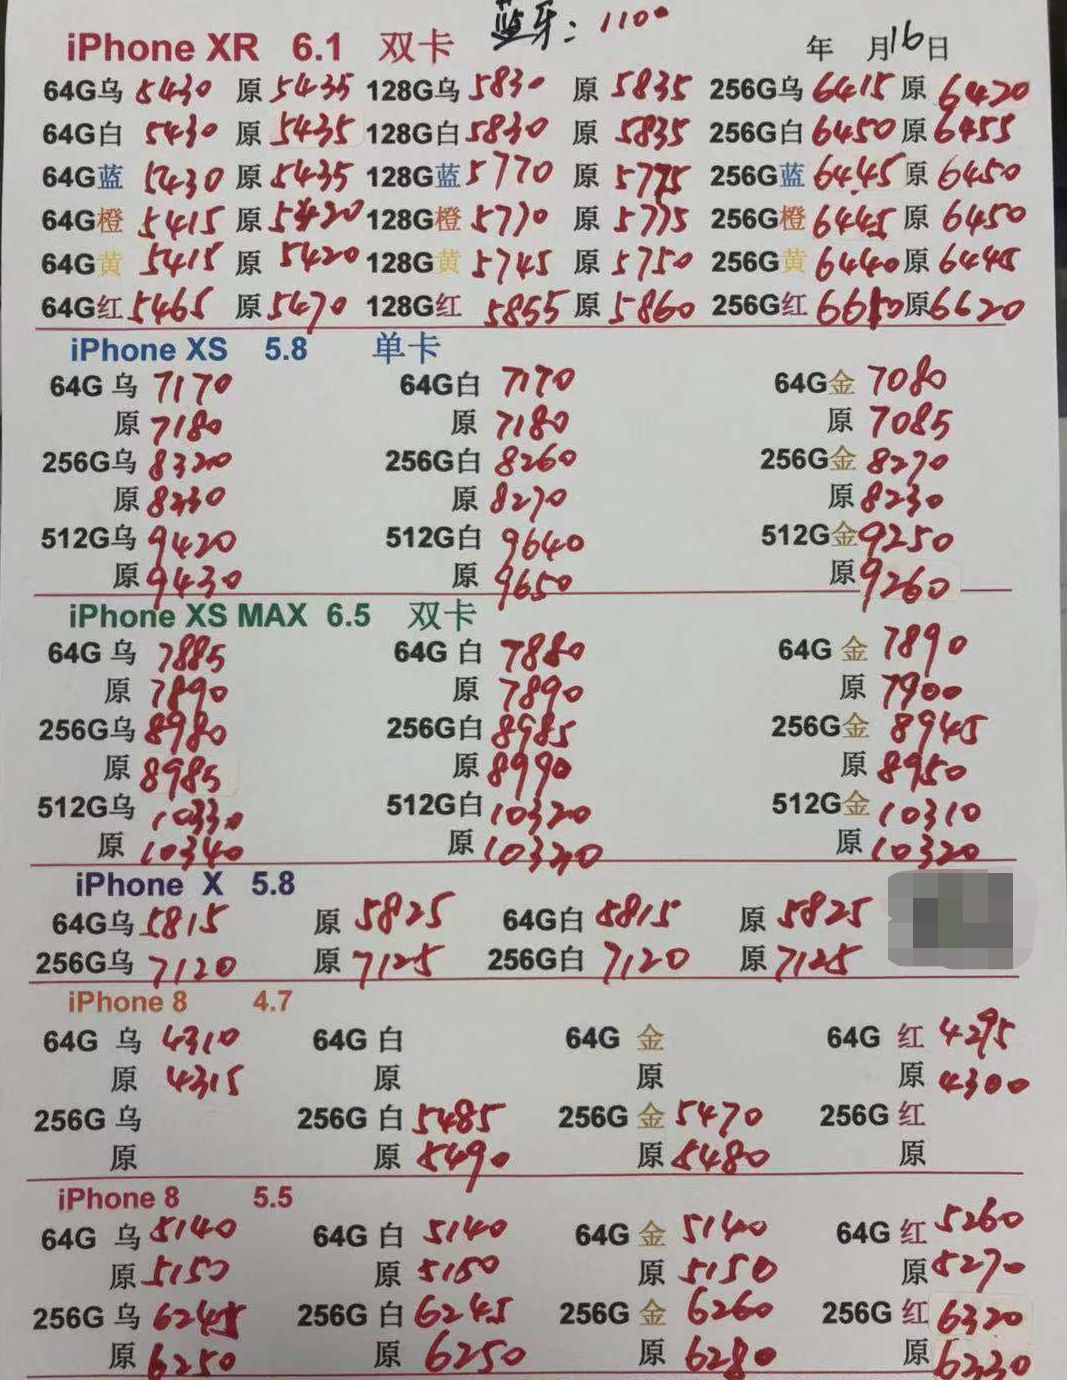 蓝牙: 1100
iPhone XR 6.1 双卡 年 月16日
64G乌 5430 原 5435 128G乌 5830 原 5835 256G乌 6415 原 6420
64G白 5430 原 5435 128G白 5830 原 5835 256G白 6450 原 6455
64G蓝 5430 原 5435 128G蓝 5770 原 5775 256G蓝 6445 原 6450
64G橙 5415 原 5420 128G橙 5770 原 5775 256G橙 6445 原 6450
64G黄 5415 原 5420 128G黄 5745 原 5750 256G黄 6440 原 6445
64G红 5465 原 5470 128G红 5855 原 5860 256G红 6610 原 6620
iPhone XS 5.8 单卡
64G 乌 7170 64G白 7170 64G金 7080
原 7180 原 7180 原 7085
256G乌 8320 256G白 8260 256G金 8270
原 8330 原 8270 原 8230
512G乌 9420 512G白 9640 512G金 9250
原 9430 原 9650 原 9260
iPhone XS MAX 6.5 双卡
64G 乌 7885 64G 白 7880 64G 金 7890
原 7890 原 7890 原 7900
256G乌 8980 256G白 8985 256G金 8945
原 8985 原 8990 原 8950
512G乌 10330 512G白 10320 512G金 10310
原 10340 原 10330 原 10320
iPhone X 5.8
64G乌 5815 原 5825 64G白 5815 原 5825
256G乌 7120 原 7125 256G白 7120 原 7125
iPhone 8 4.7
64G 乌 4310 64G 白 64G 金 64G 红 4295
原 4315 原 原 原 4300
256G 乌 256G 白 5485 256G 金 5470 256G 红
原 原 5490 原 5480 原
iPhone 8 5.5
64G 乌 5140 64G 白 5140 64G 金 5140 64G 红 5260
原 5150 原 5150 原 5150 原 5270
256G 乌 6245 256G 白 6245 256G 金 6260 256G 红 6320
原 6250 原 6250 原 6280 原 6330